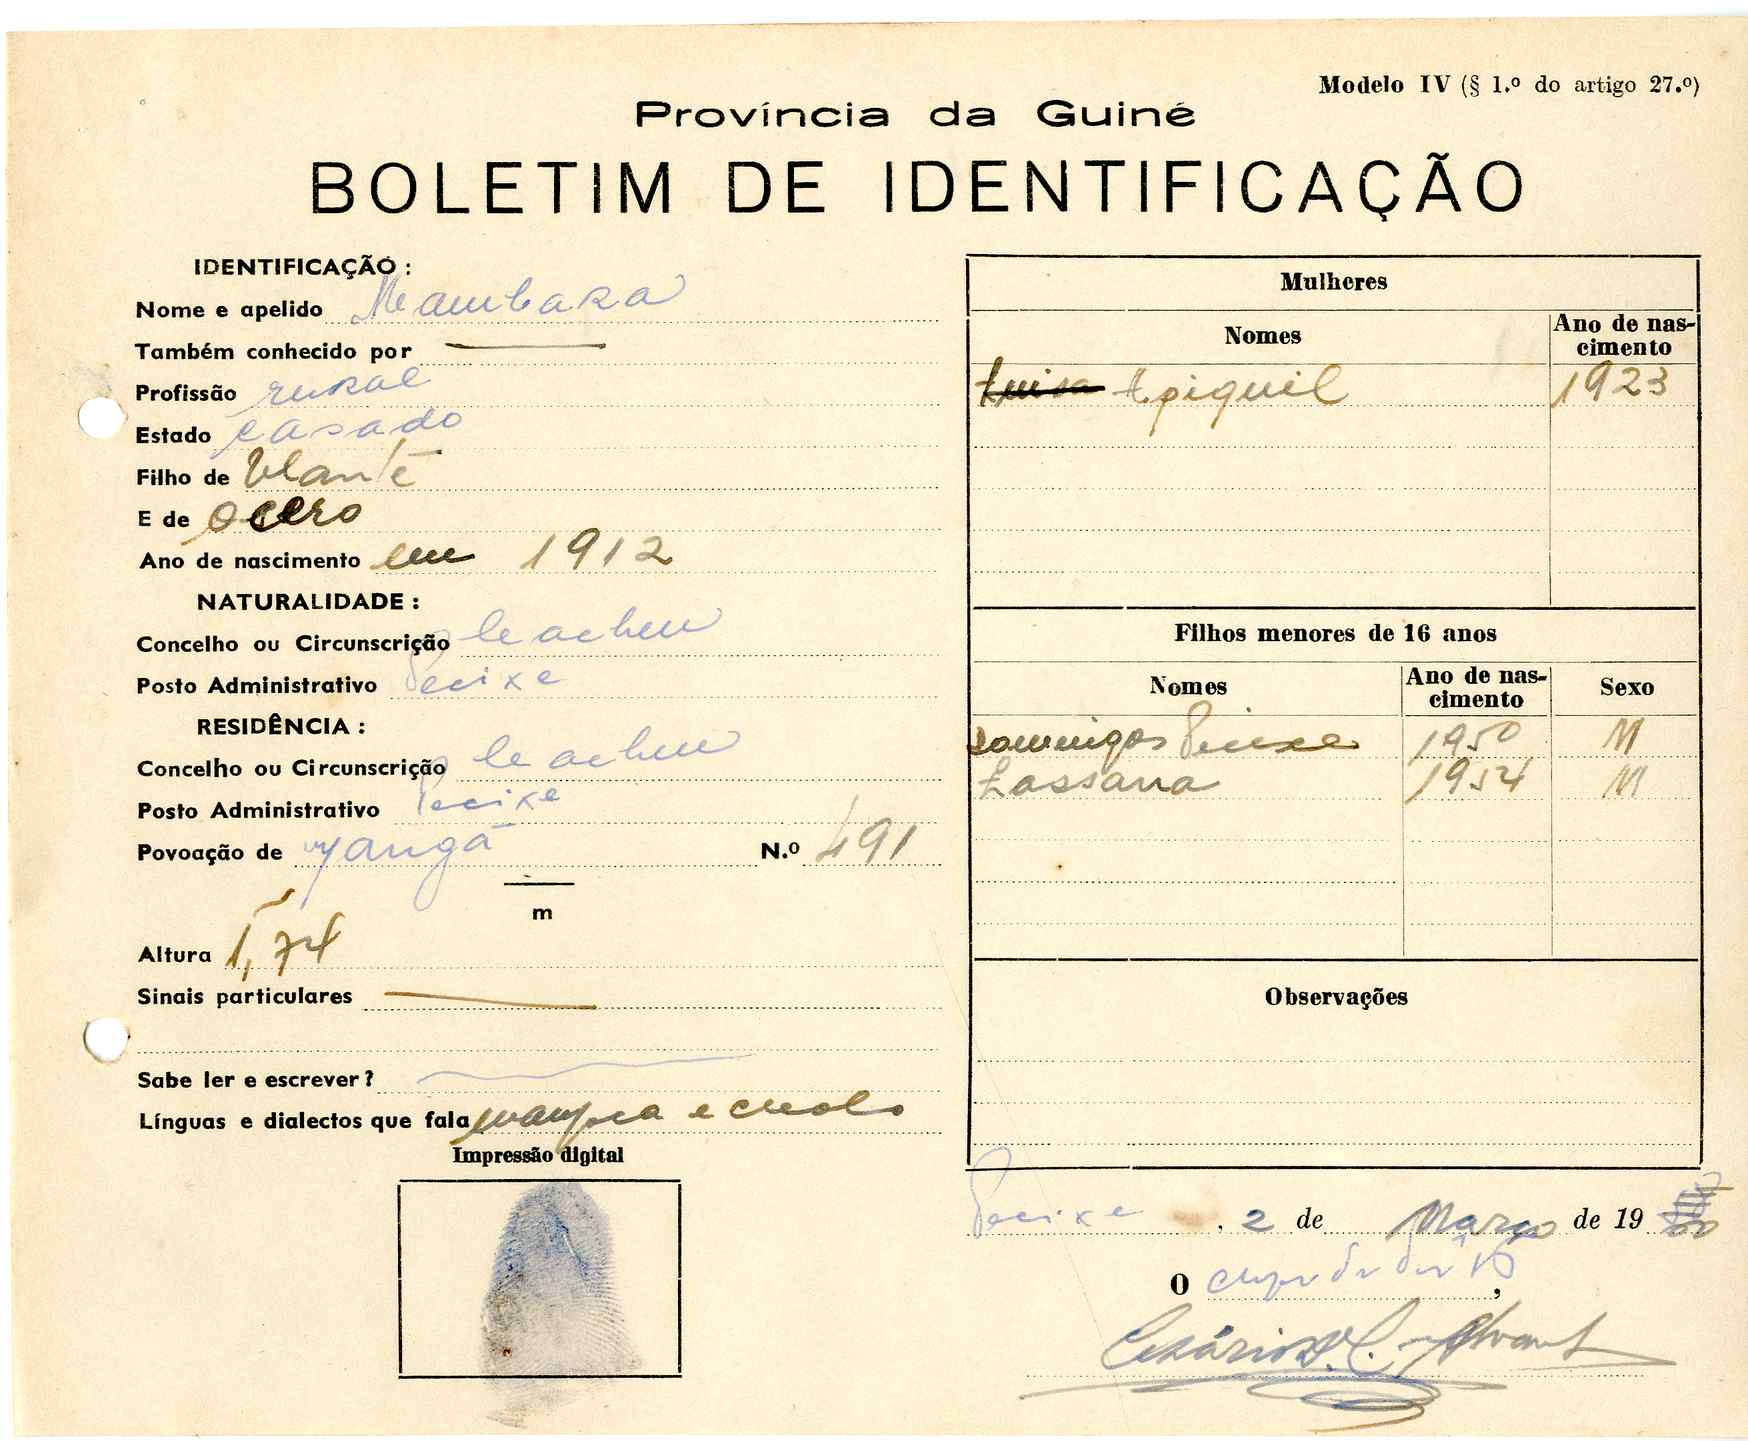 Modelo IV (§ 1.º do artigo 27.º)
Província da Guiné
BOLETIM DE IDENTIFICAÇÃO
IDENTIFICAÇÃO :
Nome e apelido Mambara
Também conhecido por
Profissão rural
Estado casado
Filho de
E de
Ano de nascimento em 1912
NATURALIDADE :
Concelho ou Circunscrição Cacheu
Posto Administrativo Pecixe
RESIDÊNCIA :
Concelho ou Circunscrição Cacheu
Posto Administrativo Pecixe
Povoação de N.º 491
m
Altura 1,74
Sinais particulares
Sabe ler e escrever ?
Línguas e dialectos que fala e creolo
Impressão digital
Mulheres
Nomes Ano de nas-
cimento
1923
Filhos menores de 16 anos
Nomes Ano de nas-
cimento Sexo
Domingos 1950 M
Lassana 1954 M
Observações
Pecixe, 2 de Março de 19
O